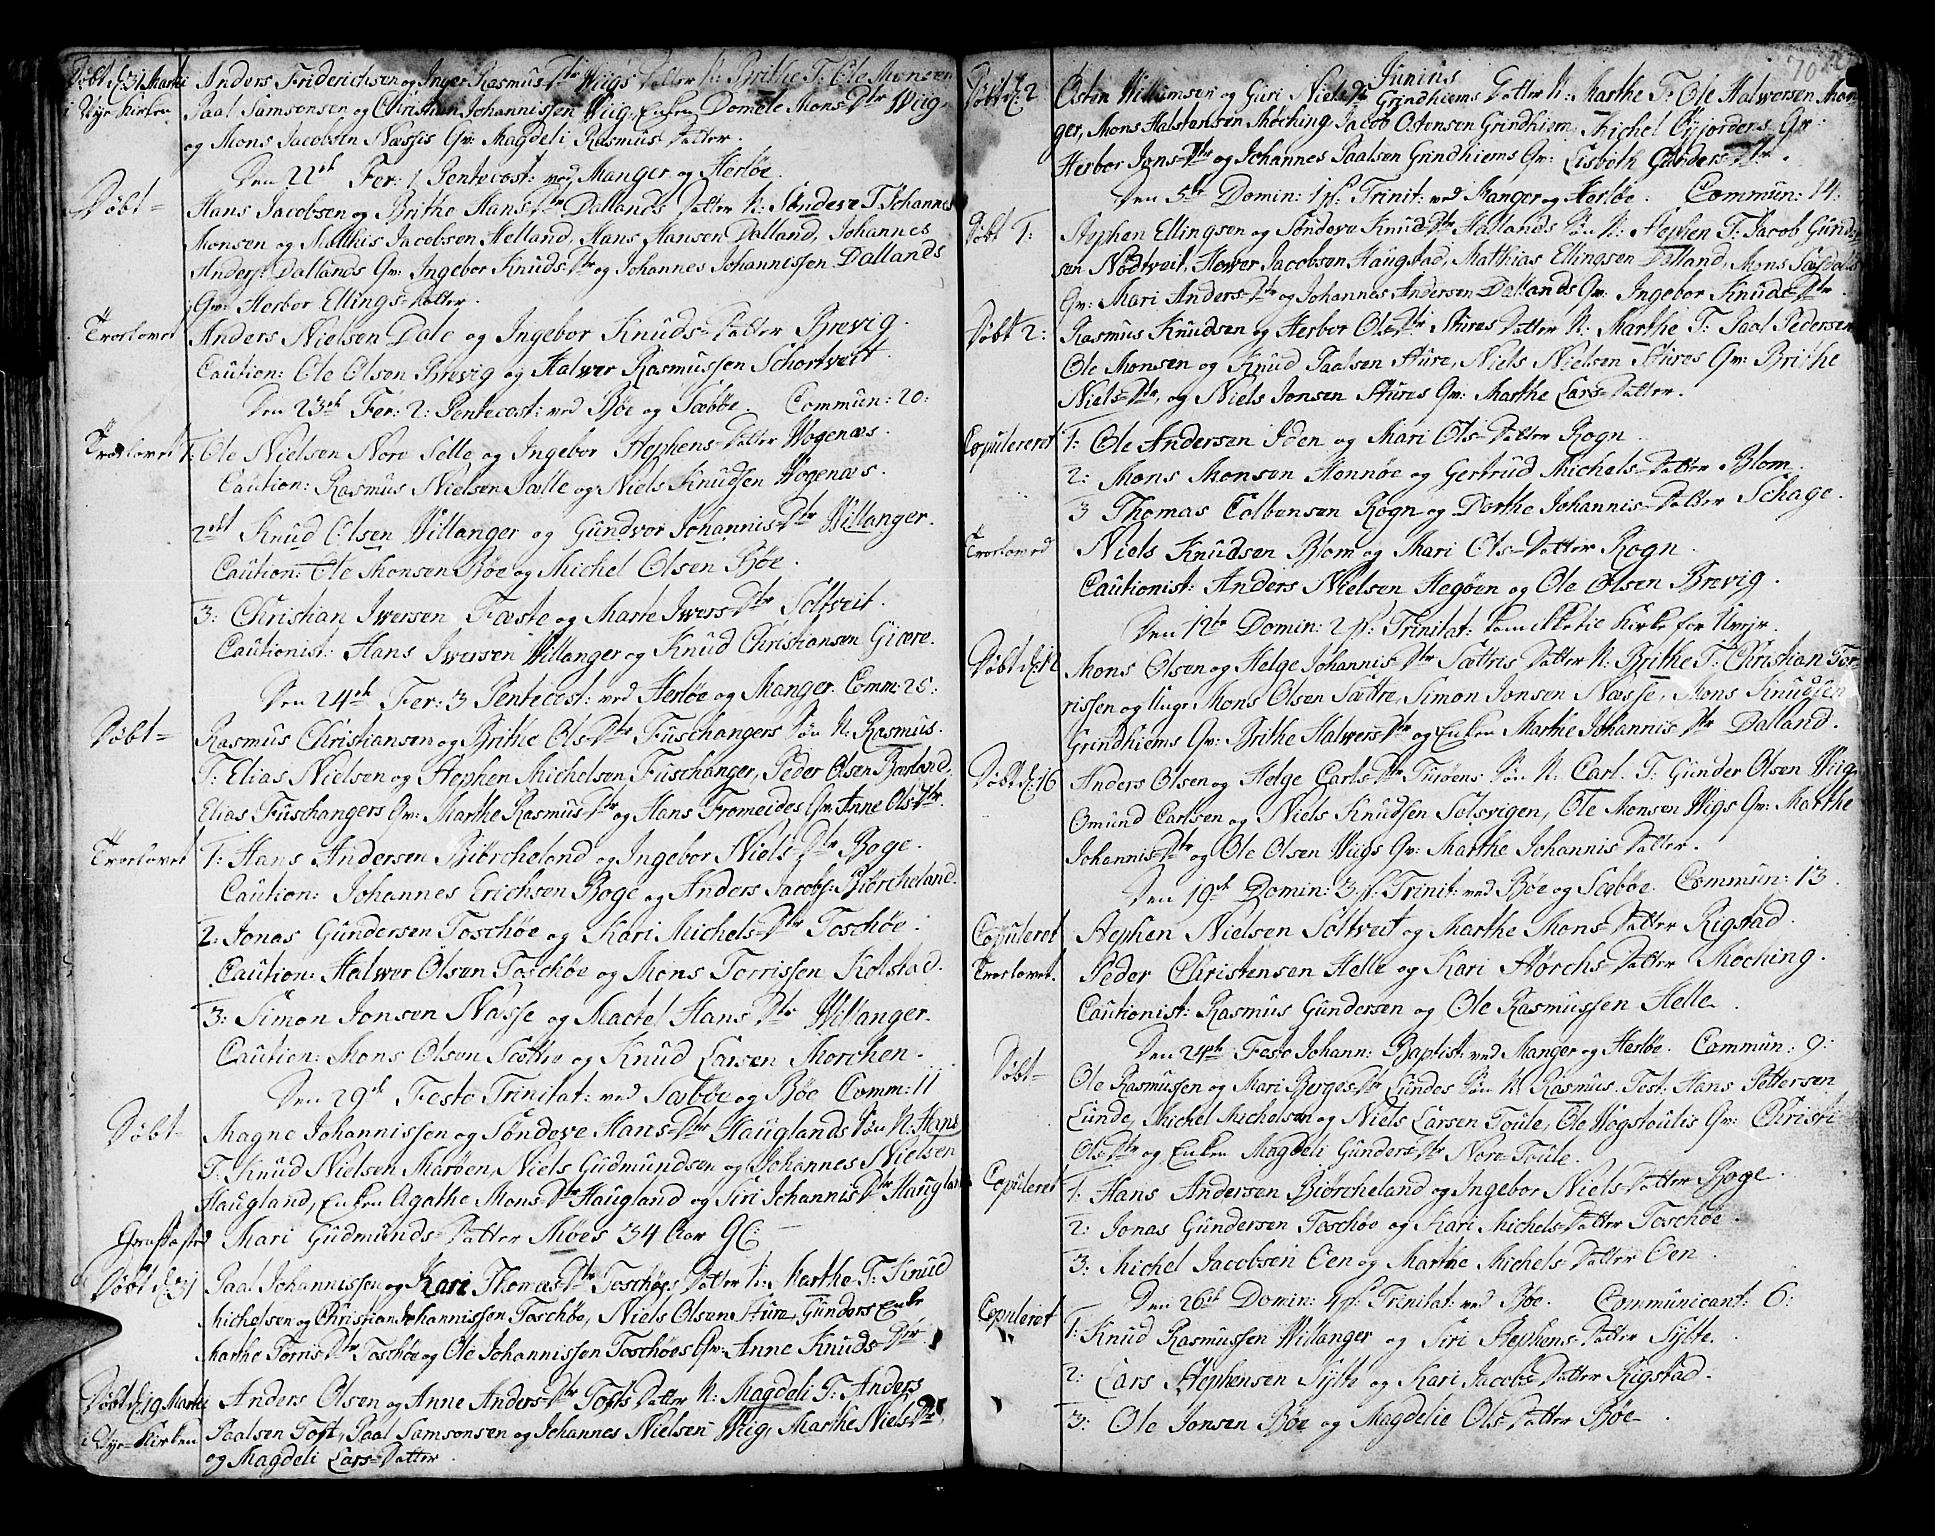 Døbt d. 31 Martii Anders Friderichsen og Inger Rasmus Dtr Wiigs Datter N: Brithe T: Ole Monsen
i Uje Kirken Paal Samsonsen og Christian Johannissen Wiig, Enken Domole Mons Dtr Wiig
og Mons Jacobsen Næsses Qv: Magdeli Rasmus Datter.
Den 22de Fer: 1 Pentecost: ved Manger og Herløe.
Døbt Hans Jacobsen og Brithe Hans Dtr Dallands Datter N: Søndeve T Johannes
Monsen og Matthis Jacobsen Helland, Hans Hansen Dalland, Johannes
Anders: Dallands Qv: Ingebor Knuds Dtr og Johannes Johannissen Dallands
Qv: Herbor Ellings Datter.
Troelovet Anders Nielsen Dale og Ingebor Knuds Datter Brevig.
Caution: Ole Olsen Brevig og Halwer Rasmussen Schortveit
Den 23de Fer: 2: Pentecost: ved Bøe og Sæbøe. Commun: 20:
Troelovet 1: Ole Nielsen Nore Selle og Ingebor Stephens Datter Wogenæs.
Caution: Rasmus Nielsen Sælle og Niels Knudsen Wogenæs.
2det Knud Olsen Willanger og Gundvor Johannis Dtr Willanger.
Caution: Ole Monsen Bøe og Michel Olsen Bøe.
3: Christian Iwersen Fæste og Marte Iwers Dtr Soltveit.
Cautionist: Hans Iwersen Willanger og Knud Christiansen Giære.
Den 24de Fer: 3 Pentecost: ved Herløe og Manger. Comm: 25:
Døbt Rasmus Christiansen og Brithe Ols Dtr Fuschangers Søn N: Rasmus.
T: Elias Nielsen og Stephen Michelsen Fuschanger, Peder Olsen Io
Elias Fuschangers Qv: Marthe Rasmus Dtr og Hans Fromeides Qv: Anne Ols Dtr.
Troelovet 1: Hans Andersen Biørcheland og Ingebor Niels Dtr Boge.
Caution: Johannes Erichsen Boge og Anders Jacobs: Biørcheland.
2: Jonas Gundersen Toschøe og Kari Michels Dtr Toschøe.
Caution: Halwer Olsen Toschøe og Mons Torrissen Kolstad.
3: Simon Jonsen Næsse og Mactel Hans Dtr Willanger.
Caution: Mons Olsen Sættre og Knud Larsen Morchen.
Den 29de Festo Trinitat: ved Sæbøe og Bøe Comm: 11
Døbt Magne Johannissen og Søndeve Hans Dtr Hauglands Søn N: Hans
T: Knud Nielsen Marøen, Niels Gudmundsen og Johannes Nielsen
Haugland, Enken Agathe Mons Dtr Haugland og Siri Johannis Dtr Haugland
Mari Gudmunds Datter Møes 34 Aar
Døbt d. 31 Paal Johannissen og Kari Thomæs Dtr Toschøes Datter N: Marthe T: Knud
Michelsen og Christian Johannissen Toschøe, Niels Olsen Sture, Gunders Enke
Marthe Torris Dtr Toschøe og Ole Johannissen Toschøes Qv: Anne Knuds Dtr
Døbt d. 19 Martii Anders Olsen og Anne Anders Dtr Tofts Datter N: Magdeli T: Anders
i Uje Kirken Paalsen Toft, Paal Samsonsen og Johannes Nielsen Wiig, Marthe Niels Dtr
og Magdeli Lars Datter.
70
Junius
Døbt d: 2 Østen Willumsen og Guri Niels Dtr Grindhiems Datter N: Marthe T: Ole Halwersen Mon-
ger, Mons Halstensen Møching, Jacob Ostensen Grindhiem, Michel Qv:
Herbor Jons Dtr og Johannes Paalsen Grindhiems Qv: Lisbeth Gunders Dtr.
Den 5te Domin: 1 p: Trinit: ved Manger og Herløe. Commun: 14:
Døbt 1: Stephen Ellingsen og Søndeve Knud Dtr Hallands Søn N: Stephen T: Jacob Gunder
sen Nodtveit, Hower Jacobsen Haugstad, Matthias Ellingsen Dalland, Mons
Qv: Mari Anders Dtr og Johannes Andersen Dallands Qv: Ingebor Knuds Dtr.
Døbt 2: Rasmus Knudsen og Herbor Ols Dtr Stures Datter N: Marthe T: Paal Pedersen
Ole Monsen og Knud Paalsen Sture, Niels Nielsen Stures Qv: Brithe
Niels Dtr, og Niels Jonsen Stures Qv: Marthe Lars Datter.
Copuleret 1: Ole Andersen Iden og Mari Ols Datter Rogn.
2: Mons Monsen Honnøe og Gertrud Michels Datter Blom.
3 Thomas Colbensen Rogn og Dorthe Johannis Datter Schage.
Troeloved Niels Knudsen Blom og Mari Ols Datter Rogn.
Cautionist: Anders Nielsen Hegøen og Ole Olsen Brevig.
Den 12te Domin: 2 p: Trinitat: kom ikke til Kirke for Uvejr.
Døbt d: 12 Mons Olsen og Helge Johannis Dtr Sættris Datter N: Brithe T: Christian Tor-
rissen og unge Mons Olsen Sættre, Simon Jonsen Næsse, Mons Knudsen
Grindhiems Qv: Brithe Halwers Dtr og Enken Marthe Johannis Dtr Dalland.
Døbt d: 16 Anders Olsen og Helge Carls Dtr Turøens Søn N: Carl. T: Gunder Olsen Wiig,
Omund Carlsen og Niels Knudsen Solsvigen, Ole Monsen Wigs Qv: Marthe
Johannis Dtr og Ole Olsen Wiigs Qv: Marthe Johannis Datter.
Den 19de Domin: 3 p: Trinit: ved Bøe og Sæbøe. Commun: 13.
Copuleret Stephen Nielsen Soltveit og Marthe Mons Datter Rigstad.
Troelovet. Peder Christensen Helle og Kari Størchs Datter Møching.
Cautionist: Rasmus Gundersen og Ole Rasmussen Helle.
Den 24de Festo Johann: Baptist: ved Manger og Herløe. Commun: 9:
Døbt Ole Rasmussen og Mari Berges Dtr Lundes Søn N: Rasmus. Test: Hans Pettersen
Lunde, Michel Michelsen og Niels Larsen Toule, Ole Høgstoulis Qv: Christi
Ols Dtr og Enken Magdeli Gunders Dtr Nore Toule.
Copuleret 1: Hans Andersen Biørcheland og Ingebor Niels Datter Boge.
2: Jonas Gundersen Toschøe og Kari Michels Datter Toschøe.
3: Michel Jacobsen Oen og Marthe Michels Datter Oen.
Den 26de Domin: 4 p: Trinitat: ved Bøe. Communicant: 6:
Copuleret 1: Knud Rasmussen Willanger og Siri Stephens Datter Sylte.
2: Lars Stephensen Sylte og Kari Jacobs Datter Rigstad.
3: Ole Jonsen Bøe og Magdelie Ols Datter Bøe.